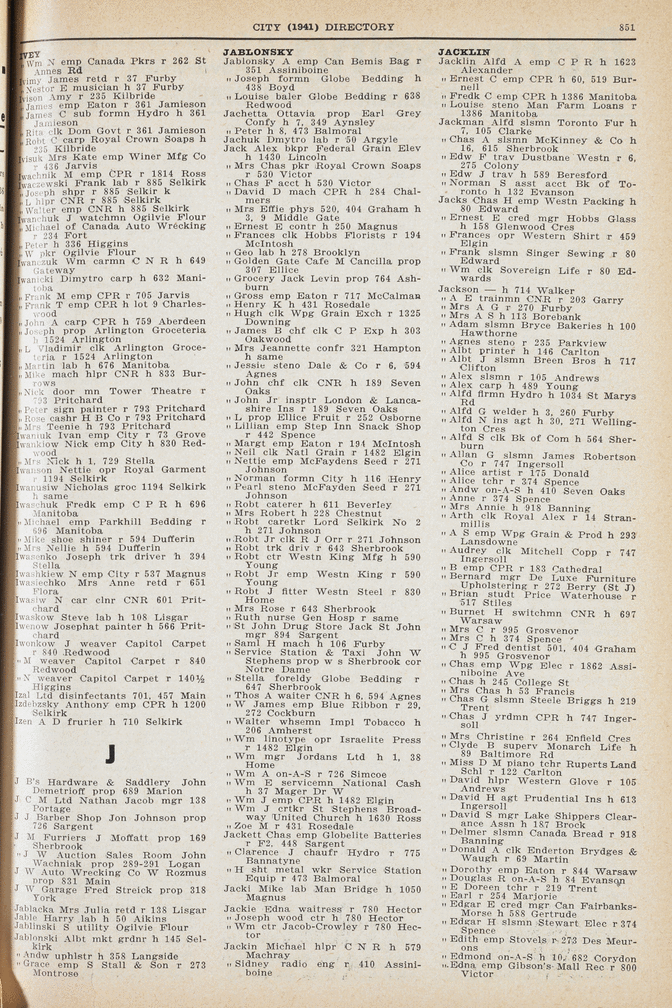 CITY (1941) DIRECTORY 851
IVEY
„ Wm N emp Canada Pkrs r 262 St
Annes Rd
Ivimy James retd r 37 Furby
„ Nestor E musician h 37 Furby
Ivison Amy r 235 Kilbride
„ James emp Eaton r 361 Jamieson
„ James C sub formn Hydro h 361
Jamieson
„ Rita clk Dom Govt r 361 Jamieson
„ Robt C carp Royal Crown Soaps h
235 Kilbride
Ivisuk Mrs Kate emp Winer Mfg Co
r 436 Jarvis
Iwachnik M emp CPR r 1814 Ross
Iwaczewski Frank lab r 885 Selkirk
„ Joseph shpr r 885 Selkirk
„ L hlpr CNR r 885 Selkirk
„ Walter emp CNR h 885 Selkirk
Iwanchuk J watchmn Ogilvie Flour
„ Michael of Canada Auto Wrecking
r 234 Fort
„ Peter h 336 Higgins
„ W pkr Ogilvie Flour
Iwanczuk Wm carmn C N R h 649
Gateway
Iwanicki Dimytro carp h 632 Mani-
toba
„ Frank M emp CPR r 705 Jarvis
„ Frank T emp CPR lot 9 Charles-
wood
„ John A carp CPR h 759 Aberdeen
„ Joseph prop Arlington Groceteria
h 1524 Arlington
„ L Vladimir clk Arlington Groce-
teria r 1524 Arlington
„ Martin lab h 676 Manitoba
„ Mike mach hlpr CNR h 833 Bur-
rows
„ Nick door mn Tower Theatre r
793 Pritchard
„ Peter sign painter r 793 Pritchard
„ Rose cashr H B Co r 793 Pritchard
„ Mrs Teenie h 793 Pritchard
Iwaniuk Ivan emp City r 73 Grove
Iwankiow Nick emp City h 830 Red-
wood
„ Mrs Nick h 1, 729 Stella
Iwanson Nettie opr Royal Garment
r 1194 Selkirk
Iwanusiw Nicholas groc 1194 Selkirk
h same
Iwaschuk Fredk emp C P R h 696
Manitoba
„ Michael emp Parkhill Bedding r
696 Manitoba
„ Mike shoe shiner r 594 Dufferin
„ Mrs Nellie h 594 Dufferin
Iwasenko Joseph trk driver h 394
Stella
Iwashkiew N emp City r 537 Magnus
Iwasiechko Mrs Anne retd r 651
Flora
Iwasiw N car clnr CNR 601 Prit-
chard
Iwaskow Steve lab h 108 Lisgar
Iwenow Josephat painter h 566 Prit-
chard
Iwonkow J weaver Capitol Carpet
r 840 Redwood
„ M weaver Capitol Carpet r 840
Redwood
„ N weaver Capitol Carpet r 140½
Higgins
Izal Ltd disinfectants 701, 457 Main
Izdebzsky Anthony emp CPR h 1200
Selkirk
Izen A D frurier h 710 Selkirk
J
J B's Hardware & Saddlery John
Demetrioff prop 689 Marion
J C M Ltd Nathan Jacob mgr 138
Portage
J J Barber Shop Jon Johnson prop
726 Sargent
J M Furriers J Moffatt prop 169
Sherbrook
„ J W Auction Sales Room John
Wachniak prop 289-291 Logan
J W Auto Wrecking Co W Rozmus
prop 831 Main
J W Garage Fred Streick prop 318
York
Jablacka Mrs Julia retd r 138 Lisgar
Jable Harry lab h 50 Aikins
Jablinski S utility Ogilvie Flour
Jablonski Albt mkt grdnr h 145 Sel-
kirk
„ Andw uphlstr h 358 Langside
„ Grace emp S Stall & Son r 273
Montrose
JABLONSKY
Jablonsky A emp Can Bemis Bag r
351 Assiniboine
„ Joseph formn Globe Bedding h
438 Boyd
„ Louise baler Globe Bedding r 638
Redwood
Jachetta Ottavia prop Earl Grey
Confy h 7, 349 Aynsley
„ Peter h 8, 473 Balmoral
Jachuk Dmytro lab r 50 Argyle
Jack Alex bkpr Federal Grain Elev
h 1430 Lincoln
„ Mrs Chas pkr Royal Crown Soaps
r 530 Victor
„ Chas F acct h 530 Victor
„ David D mach CPR h 284 Chal-
mers
„ Mrs Effie phys 520, 404 Graham h
3, 9 Middle Gate
„ Ernest E contr h 250 Magnus
„ Frances clk Hobbs Florists r 194
McIntosh
„ Geo lab h 278 Brooklyn
„ Golden Gate Cafe M Cancilla prop
307 Ellice
„ Grocery Jack Levin prop 764 Ash-
burn
„ Gross emp Eaton r 717 McCalman
„ Henry K h 431 Rosedale
„ Hugh clk Wpg Grain Exch r 1325
Downing
„ James H chf clk C P Exp h 303
Oakwood
„ Mrs Jeannette confr 321 Hampton
h same
„ Jessie steno Dale & Co r 6, 594
Agnes
„ John chf clk CNR h 189 Seven
Oaks
„ John Jr insptr London & Lanca-
shire Ins r 189 Seven Oaks
„ L prop Ellice Fruit r 252 Osborne
„ Lillian emp Step Inn Snack Shop
r 442 Spence
„ Margt emp Eaton r 194 McIntosh
„ Neil clk Natl Grain r 1482 Elgin
„ Nettie emp McFaydens Seed r 271
Johnson
„ Norman formn City h 116 Henry
„ Pearl steno McFayden Seed r 271
Johnson
„ Robt caterer h 611 Beverley
„ Mrs Robert h 228 Chestnut
„ Robt caretkr Lord Selkirk No 2
h 271 Johnson
„ Robt Jr clk R J Orr r 271 Johnson
„ Robt trk driv r 643 Sherbrook
„ Robt ctr Westn King Mfg h 590
Young
„ Robt Jr emp Westn King r 590
Young
„ Robt J fitter Westn Steel r 830
Home
„ Mrs Rose r 643 Sherbrook
„ Ruth nurse Gen Hosp r same
„ St John Drug Store Jack St John
mgr 894 Sargent
„ Saml H mach h 106 Furby
„ Service Station & Taxi John W
Stephens prop w s Sherbrook cor
Notre Dame
„ Stella foreldy Globe Bedding r
647 Sherbrook
„ Thos A waiter CNR h 6, 594 Agnes
„ W James emp Blue Ribbon r 29,
272 Cockburn
„ Walter whsemn Impl Tobacco h
206 Amherst
„ Wm linotype opr Israelite Press
r 1482 Elgin
„ Wm mgr Jordans Ltd h 1, 38
Home
„ Wm A on-A-S r 726 Simcoe
„ Wm E servicemn National Cash
h 37 Mager Dr W
„ Wm J emp CPR h 1482 Elgin
„ Wm J crtkr St Stephens Broad-
way United Church h 1630 Ross
„ Zoe M r 431 Rosedale
Jackett Chas emp Globelite Batteries
r F2, 448 Sargent
„ Clarence J chaufr Hydro r 775
Bannatyne
„ H sht metal wkr Service Station
Equip r 473 Balmoral
Jacki Mike lab Man Bridge h 1050
Magnus
Jackie Edna waitress r 780 Hector
„ Joseph wood ctr h 780 Hector
„ Wm ctr Jacob-Crowley r 780 Hec-
tor
Jackin Michael hlpr C N R h 579
Machray
„ Sidney radio eng r 410 Assini-
boine
JACKLIN
Jacklin Alfd A emp C P R h 1623
Alexander
„ Ernest C emp CPR h 60, 519 Bur-
nell
„ Fredk C emp CPR h 1386 Manitoba
„ Louise steno Man Farm Loans r
1386 Manitoba
Jackman Alfd slsmn Toronto Fur h
7, 105 Clarke
„ Chas A slsmn McKinney & Co h
16, 615 Sherbrook
„ Edw F trav Dustbane Westn r 6,
275 Colony
„ Edw J trav h 589 Beresford
„ Norman S asst acct Bk of To-
ronto h 132 Evanson
Jacks Chas H emp Westn Packing h
80 Edward
„ Ernest E cred mgr Hobbs Glass
h 158 Glenwood Cres
„ Frances opr Western Shirt r 459
Elgin
„ Frank slsmn Singer Sewing r 80
Edward
„ Wm clk Sovereign Life r 80 Ed-
wards
Jackson — h 714 Walker
„ A E trainmn CNR r 203 Garry
„ Mrs A G r 270 Furby
„ Mrs A S h 113 Borebank
„ Adam slsmn Bryce Bakeries h 100
Hawthorne
„ Agnes steno r 235 Parkview
„ Albt printer h 146 Carlton
„ Albt J slsmn Breen Bros h 717
Clifton
„ Alex slsmn r 105 Andrews
„ Alex carp h 489 Young
„ Alfd firmn Hydro h 1034 St Marys
Rd
„ Alfd G welder h 3, 260 Furby
„ Alfd N ins agt h 30, 271 Welling-
ton Cres
„ Alfd S clk Bk of Com h 564 Sher-
burn
„ Allan G slsmn James Robertson
Co r 747 Ingersoll
„ Alice artist r 175 Donald
„ Alice tchr r 374 Spence
„ Andw on-A-S h 410 Seven Oaks
„ Anne r 374 Spence
„ Mrs Annie h 918 Banning
„ Arth clk Royal Alex r 14 Stran-
millis
„ A S emp Wpg Grain & Prod h 293
Lansdowne
„ Audrey clk Mitchell Copp r 747
Ingersoll
„ B emp CPR r 183 Cathedral
„ Bernard mgr De Luxe Furniture
Upholstering r 272 Berry (St J)
„ Brian studt Price Waterhouse r
517 Stiles
„ Burnet H switchmn CNR h 697
Warsaw
„ Mrs C r 995 Grosvenor
„ Mrs C h 374 Spence
„ C J Fred dentist 501, 404 Graham
h 995 Grosvenor
„ Chas emp Wpg Elec r 1862 Assi-
niboine Ave
„ Chas h 245 College St
„ Mrs Chas h 53 Francis
„ Chas G slsmn Steele Briggs h 219
Trent
„ Chas J yrdmn CPR h 747 Inger-
soll
„ Mrs Christine r 264 Enfield Cres
„ Clyde B superv Monarch Life h
89 Baltimore Rd
„ Miss D M piano tchr Ruperts Land
Schl r 122 Carlton
„ David hlpr Western Glove r 105
Andrews
„ David H agt Prudential Ins h 613
Ingersoll
„ David S mgr Lake Shippers Clear-
ance Assn h 187 Brock
„ Delmer slsmn Canada Bread r 918
Banning
„ Donald A clk Enderton Brydges &
Waugh r 69 Martin
„ Dorothy emp Eaton r 844 Warsaw
„ Douglas R on-A-S h 84 Evanson
„ E Doreen tchr r 219 Trent
„ Earl r 254 Marjorie
„ Edgar E cred mgr Can Fairbanks-
Morse h 588 Gertrude
„ Edgar H slsmn Stewart Elec r 374
Spence
„ Edith emp Stovels r 273 Des Meur-
ons
„ Edmond on-A-S h 10, 682 Corydon
„ Edna emp Gibson's Mail Rec r 800
Victor